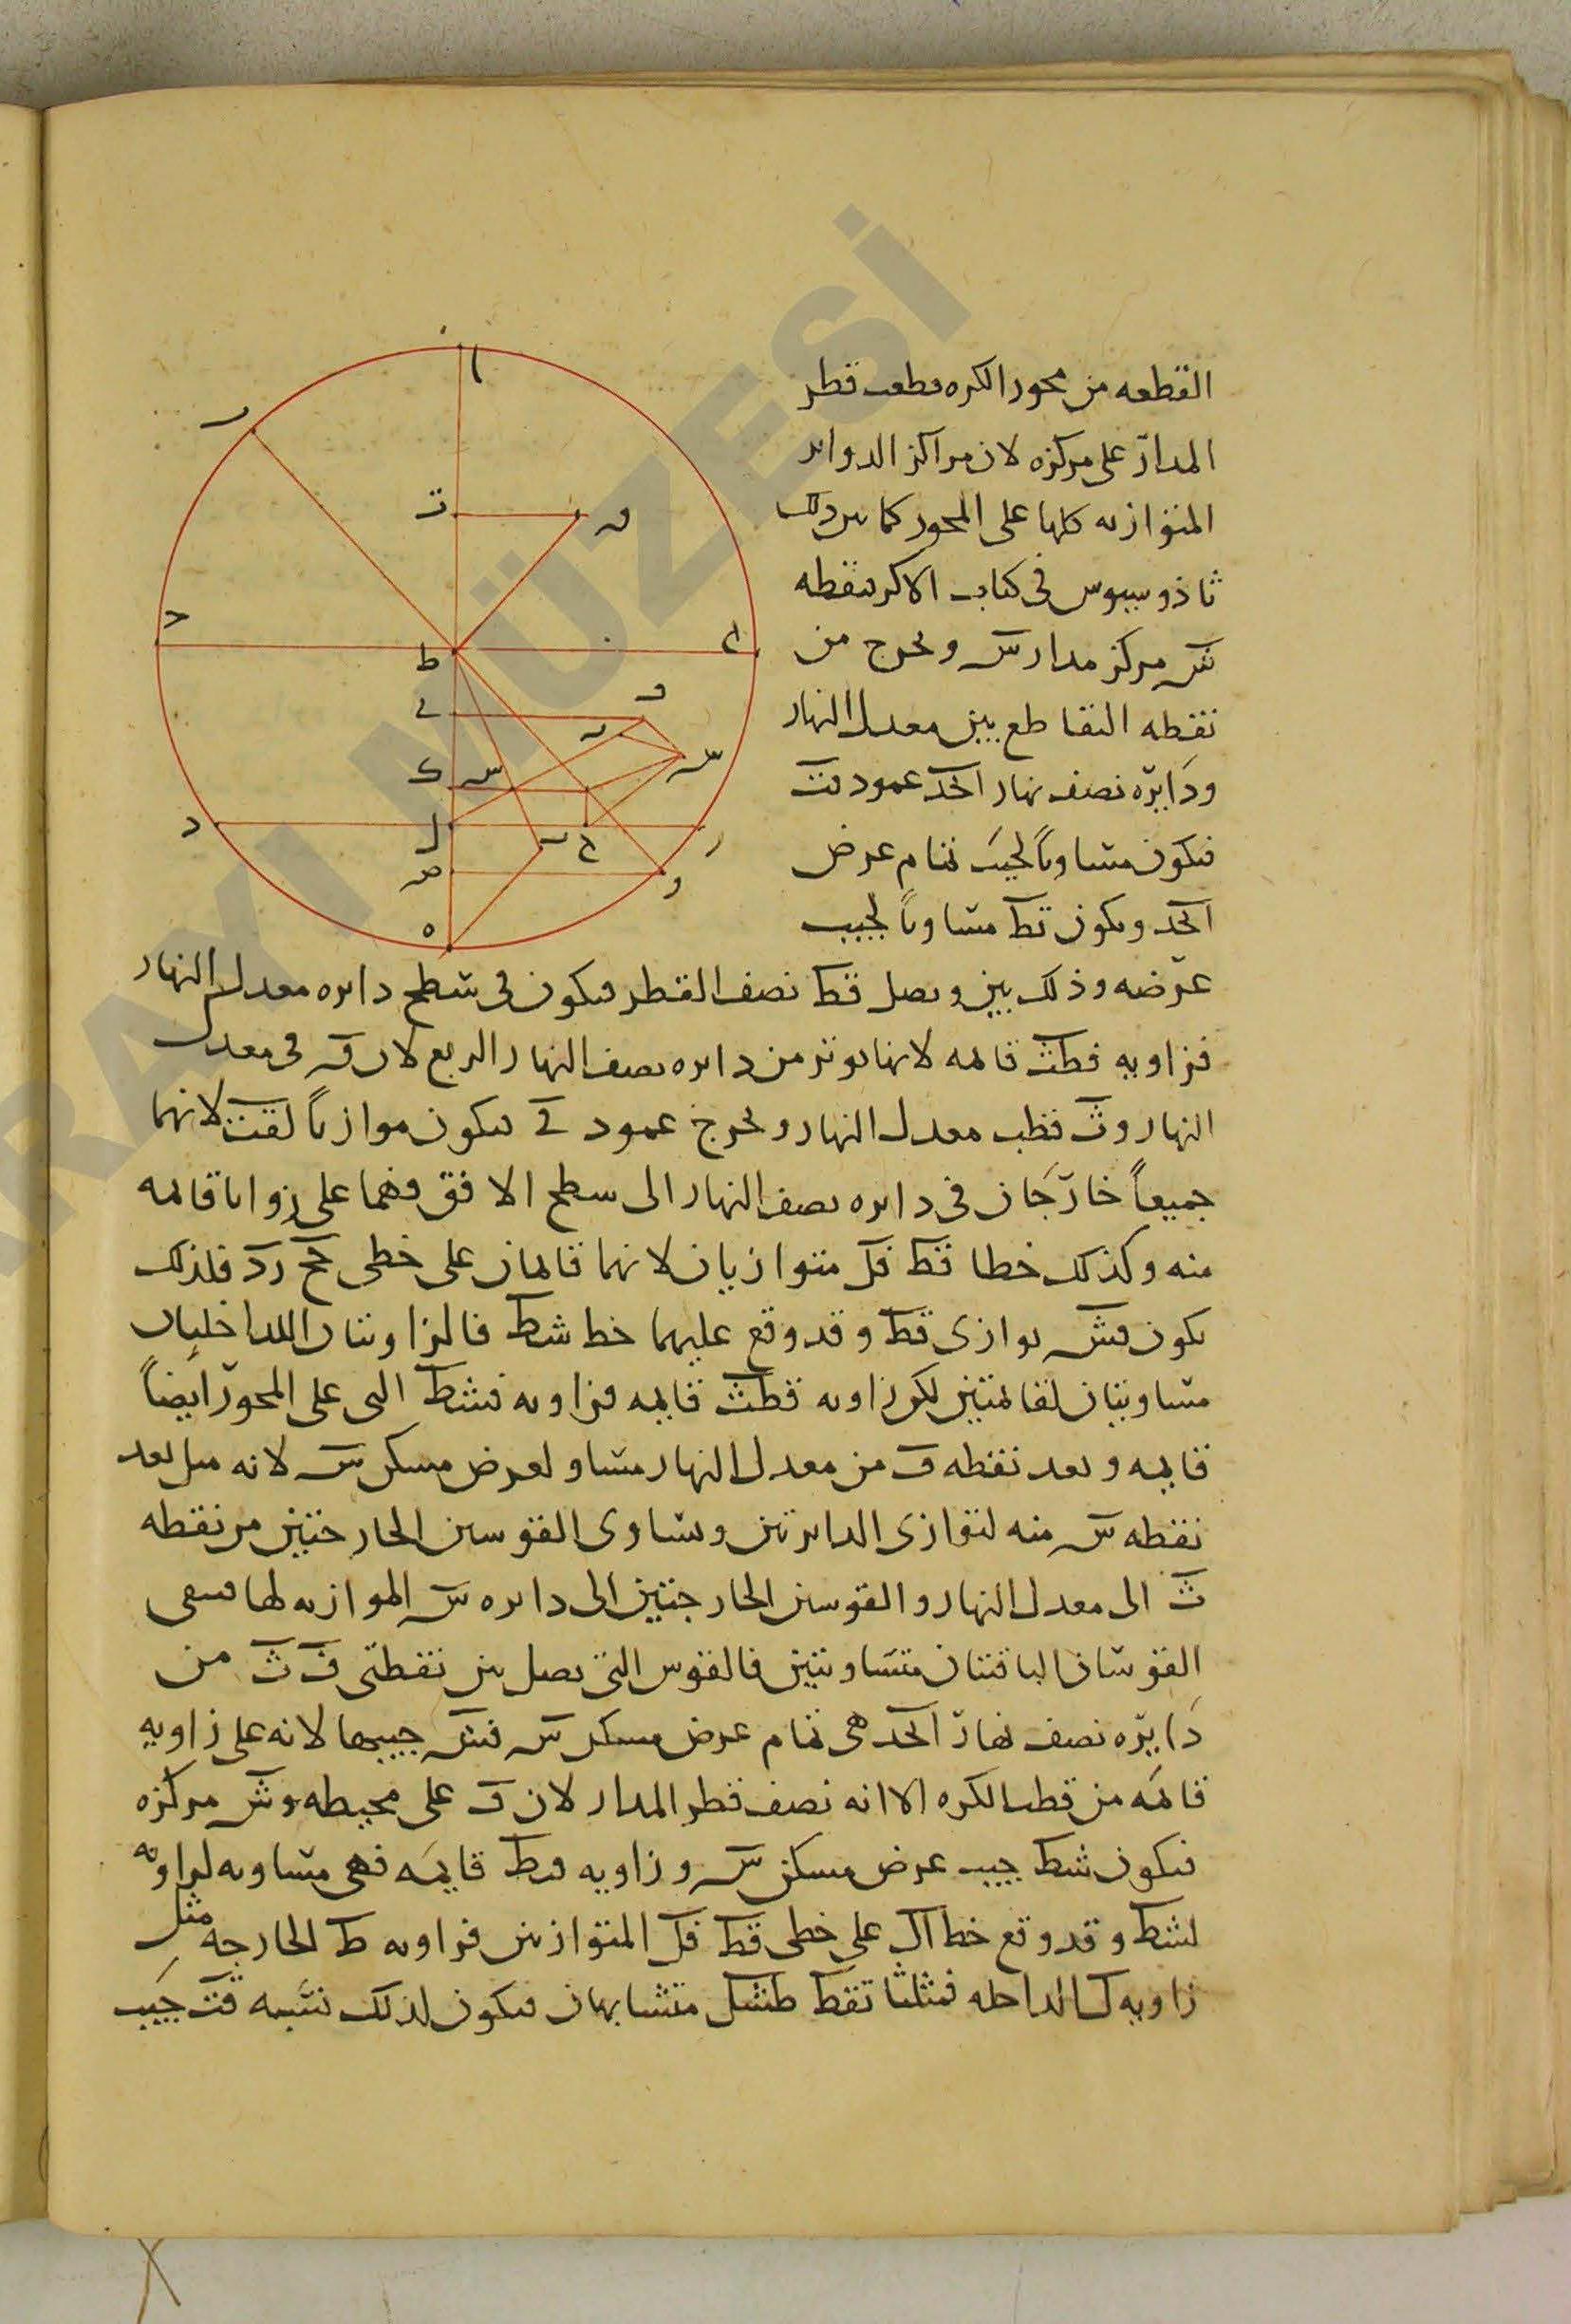 القطعه من محور الكره قطعت قطر
المدار على مركزه لان مراكز الدواىر
المتوازىه كلها على المحور كما ىىن ذلك
ثاذوسيوس فى كتاب الاكر فنقطه
ش مركز مدار س ونخرج من
نقطه التقاطع بين معدل النهار
ودايره نصف نهار الحد عمود قت
فيكون مساوياً لجيب تمام عرض
الحد ويكون تط مساوياً لجيب
عرضه وذلك بين ونصل قط نصف القطر فيكون فى سطح دايره معدل النهار
فزاويه قطث قايمه لانها توتر من دايره نصف النهار الربع لان ق فى معدل
النهار وث قطب معدل النهار ونخرج عمود فى فيكون موازياً لقت لانهما
جميعاً خارجان فى دايره نصف النهار الى سطح الافق فهما على زوايا قايمه
منه وكذلك خطا قط فل متوازيان لانهما قايمان على خطى حح رد فلذلك
يكون فش يوازى قط وقد وقع عليهما خط شط فالزاويتان الداخليتان
مساويتان لقايمتين لكن زاويه قطث قايمه فزاويه فشط التى على المحور ايضاً
قايمه وبعد نقطه ف من معدل النهار مساو لعرض مسكن س لانه مثل بعد
نقطه س منه لتوازى الدايرتين وتساوى القوسين الخارجتين من نقطه
ث الى معدل النهار والقوسين الخارجتين الى دايره س الموازيه لها فتبقى
القوسان الباقيتان متساويتين فالقوس التى تصل بين نقطتى ف ث من
دايره نصف نهار الحد هى تمام عرض مسكن س فش جيبها لانه على زاويه
قايمه من قطب الكره الا انه نصف قطر المدار لان ف على محيطه وش مركزه
فيكون شط جيب عرض مسكن س وزاويه فشط قايمه فهى مساويه لزاويه
لشط وقد وقع خط ال على خطى قط فل المتوازيين فزاويه ط الخارجه مثل
زاويه ل الداخله فمثلثا تقط طشل متشابهان فيكون لذلك نسبه قت جيب
ا
ر
ت
ق
ح
ط
ى
ف
ك
س
ل
د
ح
ر
ص
و
ه